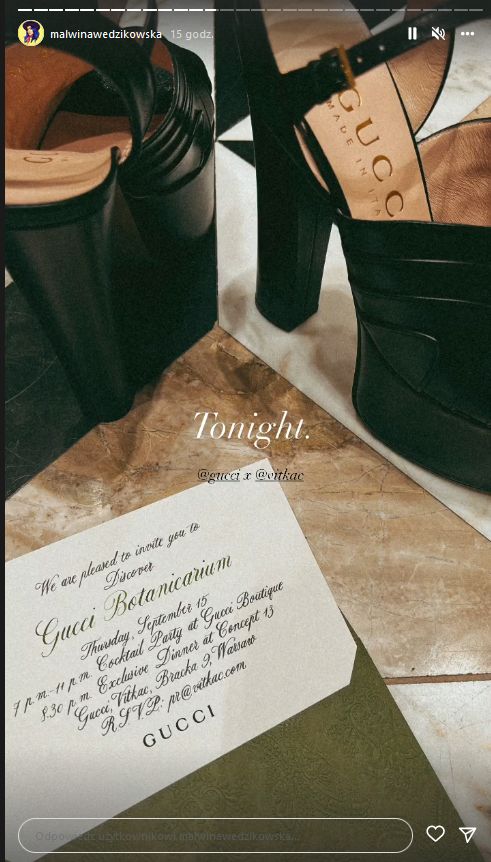 malwinawedzikowska 15 godz.
GUCCI
MADE IN ITA
Tonight.
@gucci x @vitkac
We are pleased to invite you to
Discover
Gucci Botanicarium
Thursday, September 15
7 p.m.-11 p.m. Cocktail Party at Gucci Boutique
8.30 p.m. Exclusive Dinner at Concept 13
Gucci, Vitkac, Bracka 9, Warsaw
R.S.V.P.: pr@vitkac.com
GUCCI
Odpowiedz użytkownikowi malwinawedzikowska...